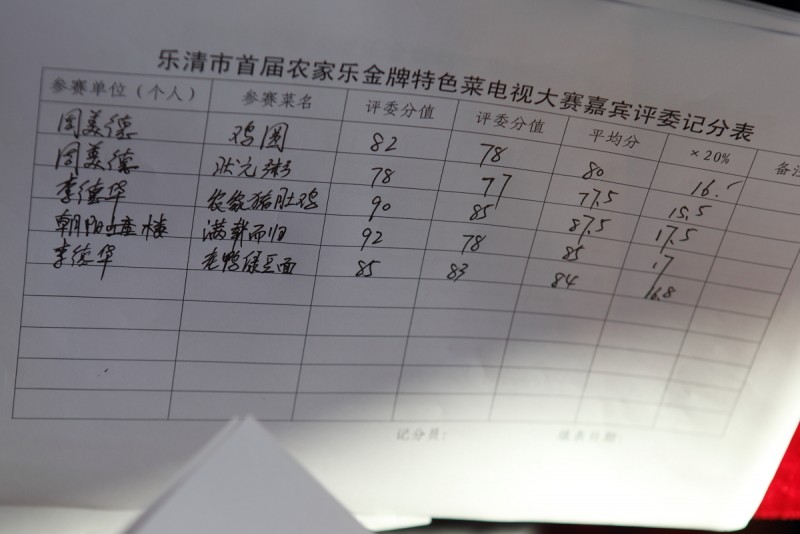 乐清市首届农家乐金牌特色菜电视大赛嘉宾评委记分表
参赛单位（个人） 参赛菜名 评委分值 评委分值 平均分 ×20% 备注
周美德 鸡圆 82 78 80 16.
周美德 状元粥 78 77 77.5 15.5
李德华 农家猪肚鸡 90 85 87.5 17.5
朝阳山庄楼 满载而归 92 78 85 17
李德华 老鸭绿豆面 85 83 84 16.8
记分员： 填表日期：